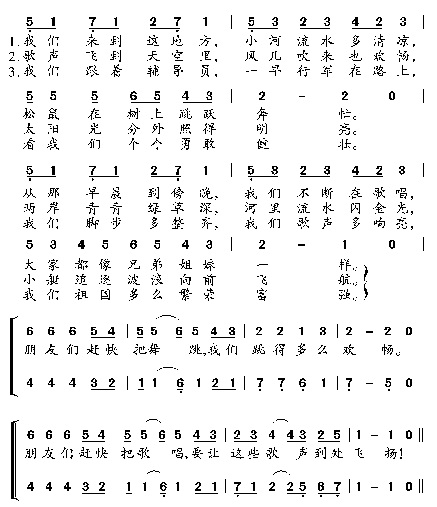 5 1 7 1 2 7 1 | 5 3 2 3 4 2 3 |
1.我们 来到 这地方, 小河 流水 多清凉,
2.歌声 飞到 天空里, 风儿 吹来 也欢畅,
3.我们 跟着 辅导员, 一早 行军 在路上,
5 5 5 5 6 5 4 3 | 2 - 2 0 |
松鼠在树上跳跃 奔 忙。
太阳光分外照得 明 亮。
看我们个个勇敢 健 壮。
5 1 7 1 2 7 1 | 5 3 2 3 4 2 3 |
从那 早晨 到傍晚, 我们 不断 在歌唱,
两岸 青青 绿草深, 河里 流水 闪金光,
我们 脚步 多整齐, 我们 歌声 多响亮,
5 3 4 3 6 5 4 3 | 2 - 1 0 |
大家都像兄弟姐妹 一 样。
小艇追逐波浪向前 飞 航。
我们祖国多么繁荣 富 强。
6 6 6 5 4 | 5 5 6 5 4 3 | 2 2 1 3 | 2 - 2 0
朋友们赶快 把舞 跳,我们 跳得多么欢 畅。
4 4 4 3 2 | 1 1 6 1 2 1 | 7 7 6 1 | 7 - 5 0
6 6 6 5 4 | 5 5 6 5 4 3 | 2 3 4 3 2 5 | 1 - 1 0
朋友们赶快 把歌 唱,要让 这些歌 声到处飞 扬!
4 4 4 3 2 | 1 1 6 1 2 1 | 7 1 2 2 5 6 7 | 1 - 1 0